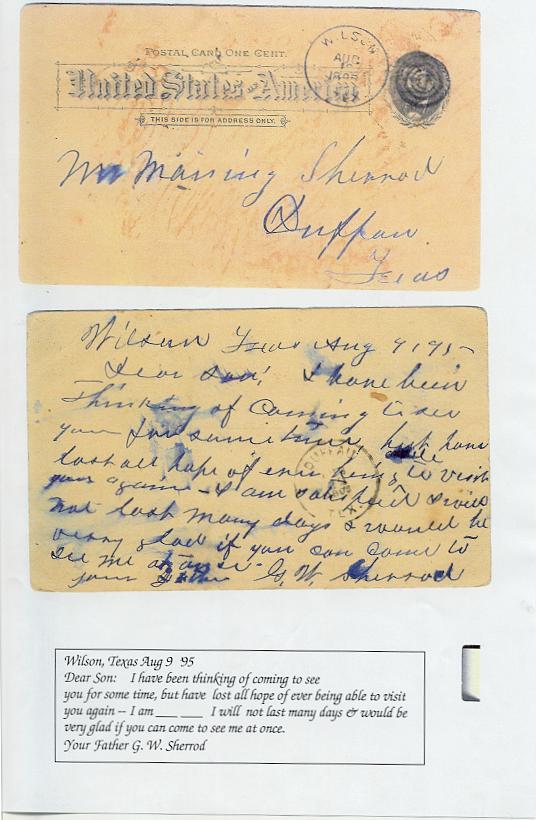 POSTAL CARD ONE CENT.
WILSON
AUG
1895
United States of America
THIS SIDE IS FOR ADDRESS ONLY.
Mr Maning Sherrod
Duffau
Texas
Wilson Texas Aug 9, 95
Dear Son, I have been
Thinking of Coming to see
you for some time, but have
lost all hope of ever being able to visit
you again - I am I will
not last many days & would be
verry glad if you can come to
see me at once
your Father G. W. Sherrod
DUFFAU
TEX.
Wilson, Texas Aug 9 '95
Dear Son: I have been thinking of coming to see
you for some time, but have lost all hope of ever being able to visit
you again -- I am ___ ___ I will not last many days & would be
very glad if you can come to see me at once.
Your Father G. W. Sherrod